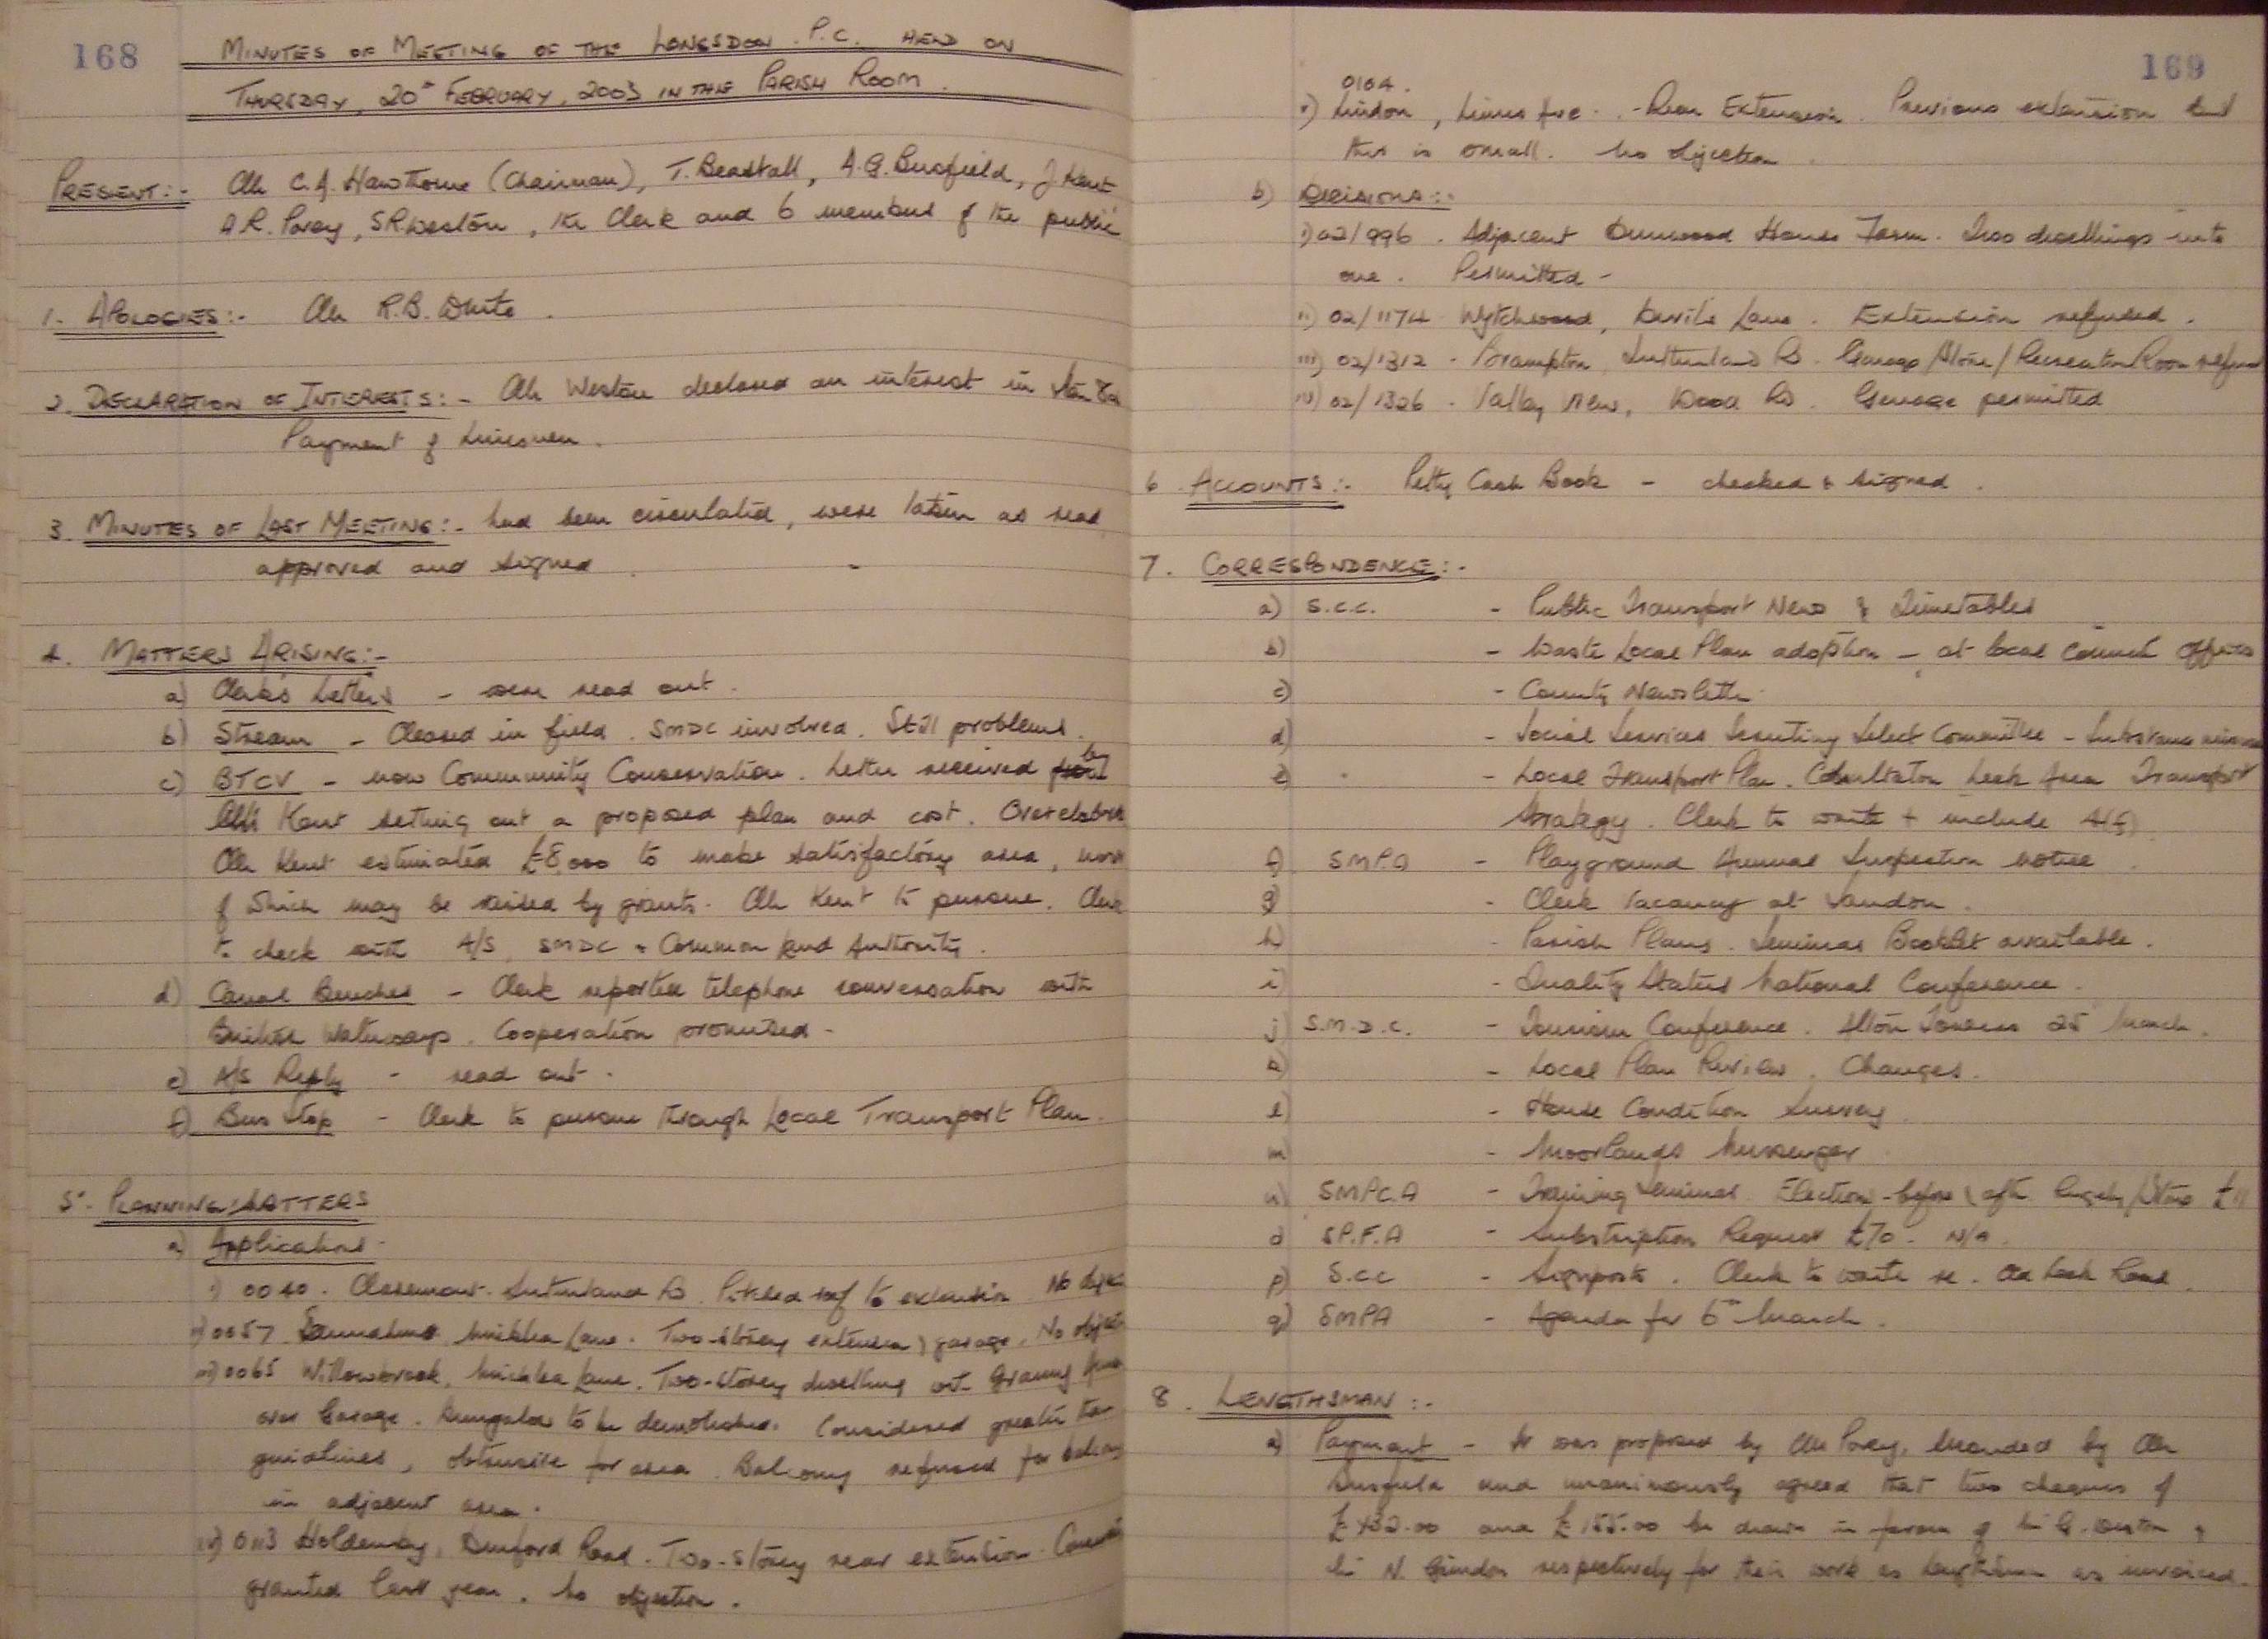 168
MINUTES OF MEETING OF THE LONGSDON P.C. HELD ON
THURSDAY, 20th FEBRUARY, 2003 IN THE PARISH ROOM.
PRESENT:- Cllr C.J. Hawthorne (Chairman), T. Beastall, A.G. Busfield, J Kent
A R. Povey, S R Weston, the Clerk and 6 members of the public
1. APOLOGIES:- Cllr R.B. White.
2. DECLARATION OF INTERESTS:- Cllr Weston declared an interest in item 8a
Payment of Linesmen.
3. MINUTES OF LAST MEETING:- had been circulated, were taken as read
approved and signed.
4. MATTERS ARISING:-
a) Clerk's Letters - were read out.
b) Stream - Cleared in field. SMDC involved. Still problems.
c) BTCV - now Community Conservation. Letter received by
Cllr Kent setting out a proposed plan and cost. Over elaborate
Cllr Kent estimated £8,000 to make satisfactory area, most
of which may be raised by grants. Cllr Kent to pursue. Clerk
to check with A/S, SMDC & Common Land Authority.
d) Canal Benches - Clerk reported telephone conversation with
British Waterways. Cooperation promised -
e) A/S Reply - read out.
f) Bus Stop - Clerk to pursue through Local Transport Plan.
5. PLANNING MATTERS
a) Applications-
i) 0040. Claremont. Sutherland Rd. Pitched roof to extension. No objec
ii) 0057 Mickleā Lane. Two-storey extension garage. No objec
iii) 0065 Willowbrook, Micklea Lane. Two-storey dwelling with Granny
over Garage. Bungalow to be demolished. Considered greater than
guidelines, obtrusive for area. Balcony refused for balcony
in adjacent area.
iv) 0113 Holdenby, Dunford Road. Two-storey rear extension.
granted last year. No objection.
169
0104.
v) Lindon, Limes Ave. - Rear Extension. Previous extension but
this is small. No objection.
b) DECISIONS:-
i) 02/996. Adjacent Dunwood House Farm. Two dwellings into
one. Permitted -
ii) 02/1174 Wytchwood, Devils Lane. Extension refused.
iii) 02/1312 - Brampton, Sutherland Rd. Garage/Store/Recreation Room refused
iv) 02/1326 - Valley View, Wood Rd. Garage permitted
6. ACCOUNTS:- Petty Cash Book - checked & signed.
7. CORRESPONDENCE:-
a) S.C.C. - Public Transport News & Timetables
b) - Waste Local Plan adoption - at local council offices
c) - County Newsletter
d) - Social Services Scrutiny Select Committee - Substance misuse
e) - Local Transport Plan. Consultation Leek Area Transport
Strategy. Clerk to write + include 4(f)
f) SMPA - Playground Annual Inspection notice.
g) - Clerk vacancy at
h) - Parish Plans. Seminar Booklet available.
i) - Quality Status National Conference.
j) S.M.D.C. - Tourism Conference. Alton Towers 25 March.
k) - Local Plan Review. Changes.
l) - House Condition Survey.
m) - Moorlands Messenger
n) SMPC.A - Training Seminar. Election - before & after. Rugeley/Stone £11
o) SP.F.A - Subscription Request £70. N/A.
p) S.CC - Signposts. Clerk to write re. Old Leek Road.
q) SMPA - Agenda for 6th March.
8. LENGTHSMAN:-
a) Payment - It was proposed by Cllr Povey, seconded by Cllr
Busfield and unanimously agreed that two cheques of
and £155.00 be drawn in favour of Mr G. Weston &
Mr N. Grindon respectively for their work as lengthsman as invoiced.